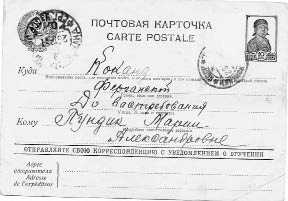 ПОЧТОВАЯ КАРТОЧКА
CARTE POSTALE
Куда Коканд
Ферганской
До востребования
Кому Тундик Марии
Александровне
ОТПРАВЛЯЙТЕ СВОЮ КОРРЕСПОНДЕНЦИЮ С УВЕДОМЛЕНИЕМ О ВРУЧЕНИИ
Адрес
отправителя
Adresse
de l'expéditeur